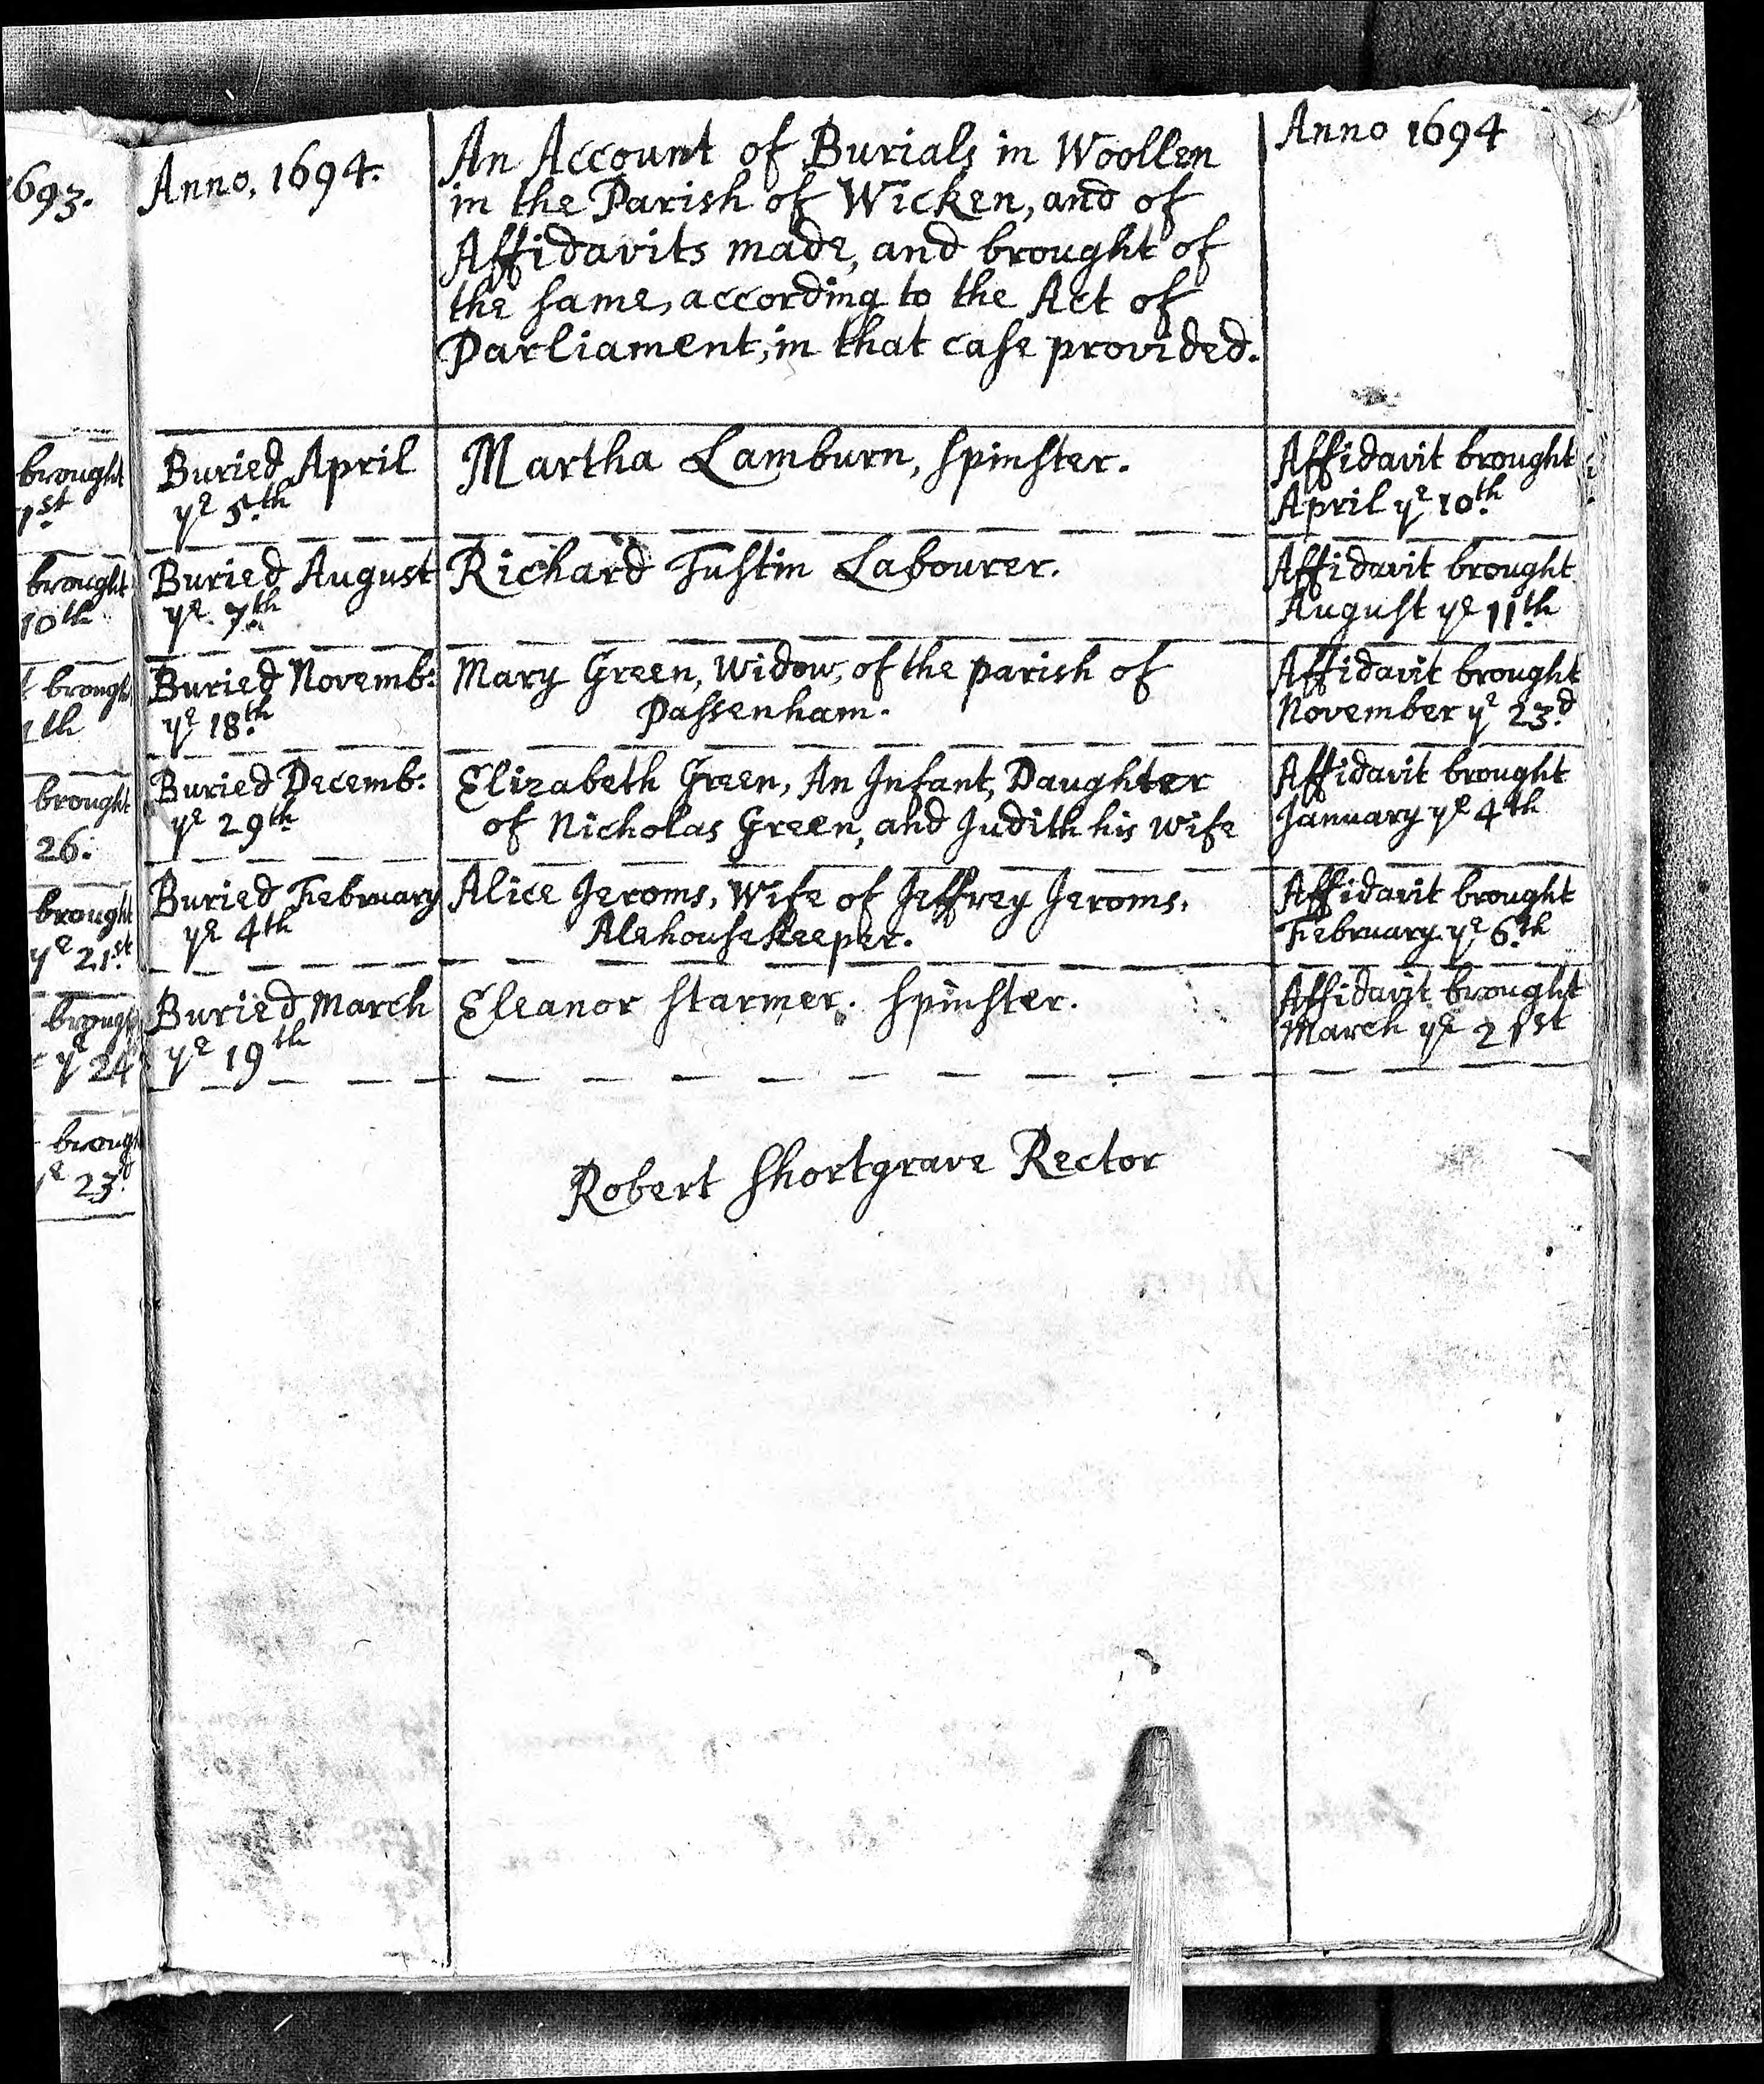 1693.
brought
1st
brought
10th
brought
brought
26.
brought
ye 21st
ye 24
ye 23d
Anno. 1694.
An Account of Burials in Woollen
in the Parish of Wicken, and of
Affidavits made, and brought of
the same, according to the Act of
Parliament, in that case provided.
Anno 1694
Buried April
ye 5th
Martha Lamburn, Spinster.
Affidavit brought
April ye 10th
Buried August
ye 7th
Richard Tustin Labourer.
Affidavit brought
August ye 11th
Buried Novemb:
ye 18th
Mary Green, Widow, of the parish of
Passenham.
Affidavit brought
November ye 23d
Buried Decemb:
ye 29th
Elizabeth Green, An Infant, Daughter
of Nicholas Green, and Judith his wife
Affidavit brought
January ye 4th
Buried February
ye 4th
Alice Jeroms, Wife of Jeffrey Jeroms,
Alehousekeeper.
Affidavit brought
February ye 6th
Buried March
ye 19th
Eleanor Starmer. Spinster.
Affidavit brought
March ye 21st
Robert Shortgrave Rector